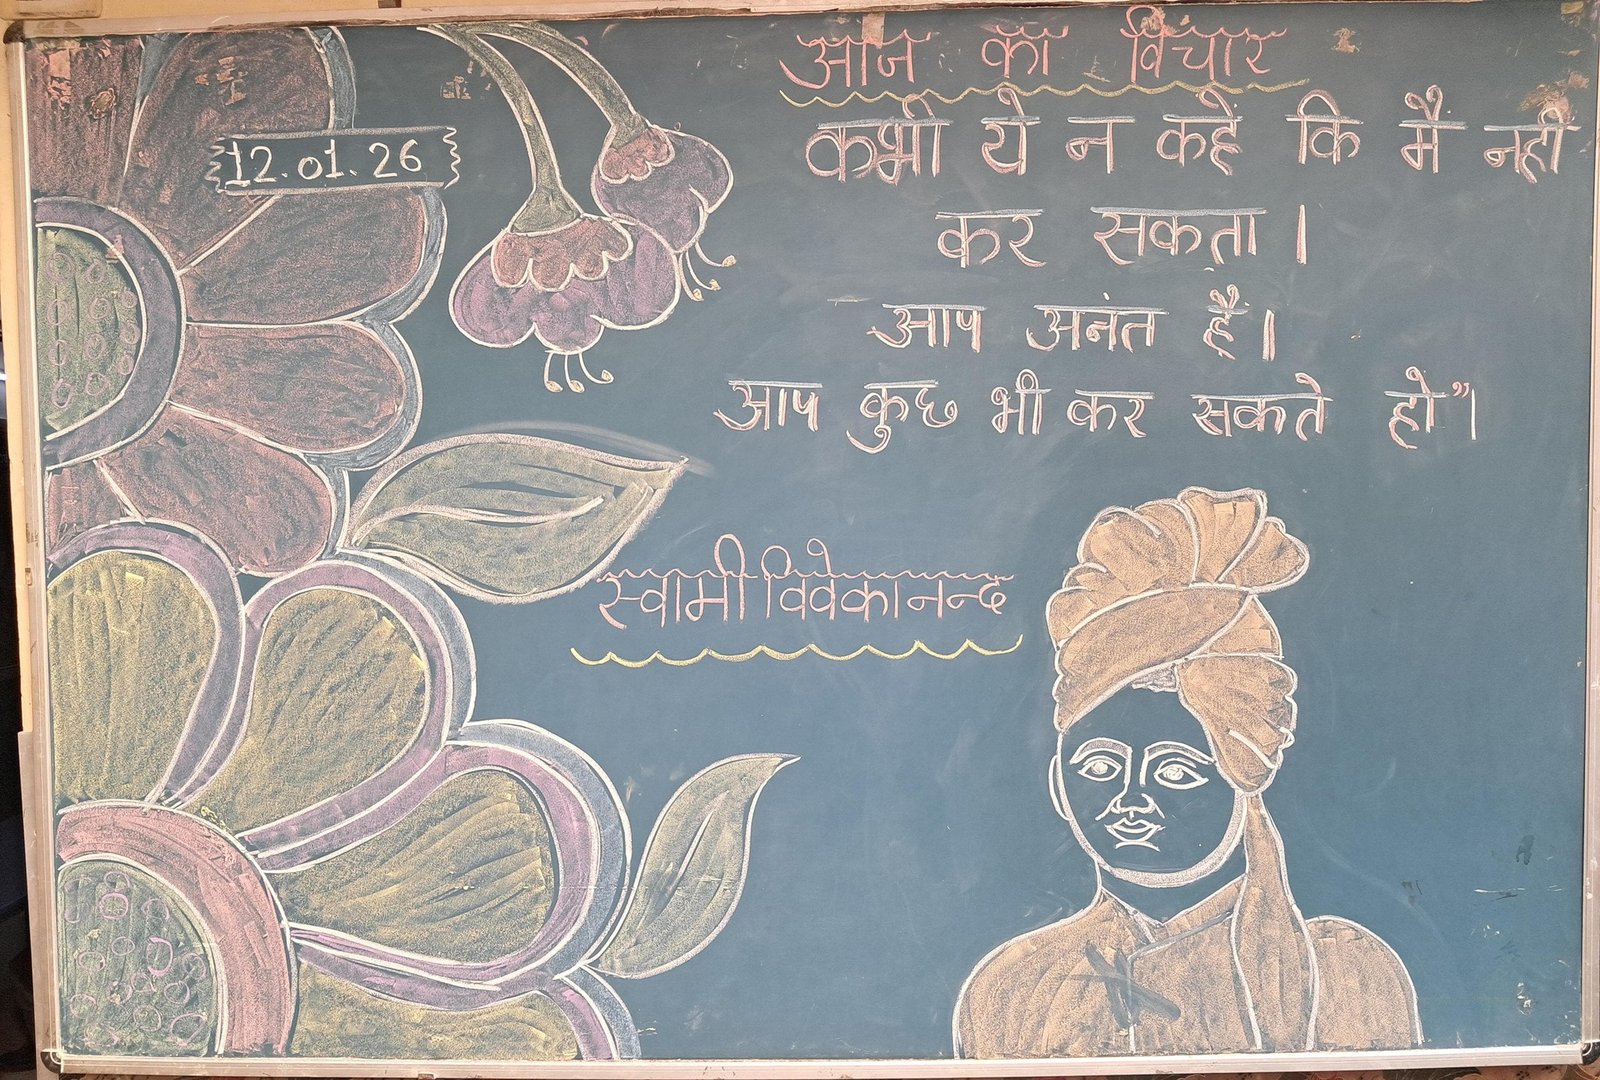 आज का विचार
12.01.26
कभी ये न कहें कि मै नहीं
कर सकता।
आप अनंत हैं।
आप कुछ भी कर सकते हो"।
स्वामी विवेकानन्द